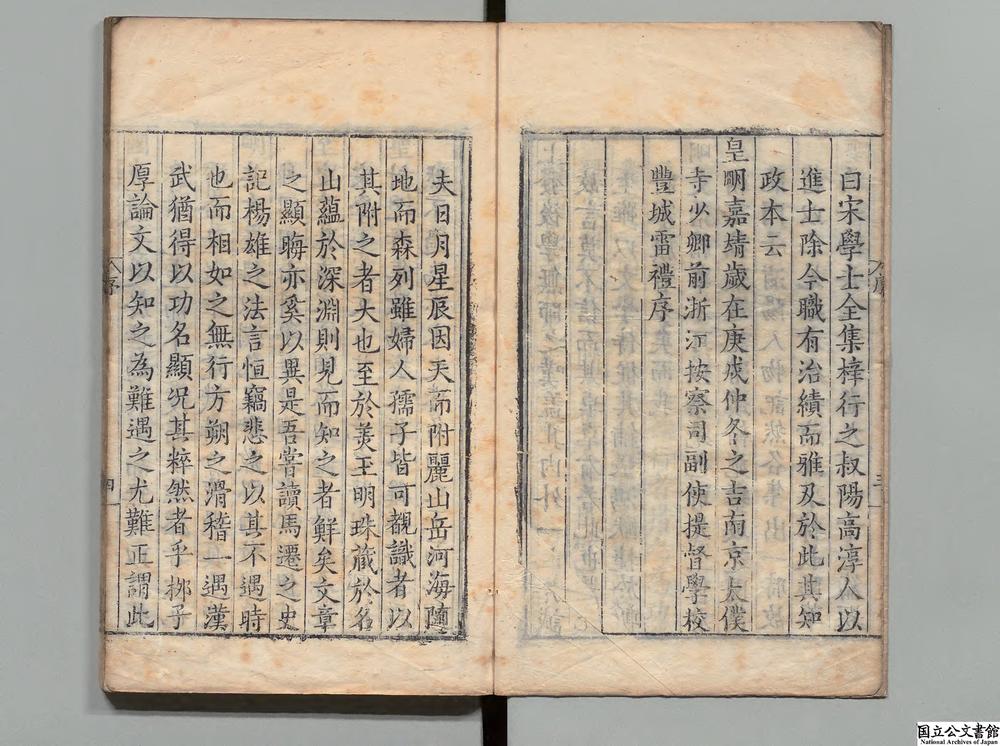 曰宋學士全集梓行之叔陽高淳人以
進士除今職有治績而雅及於此其知
政本云
皇明嘉靖歲在庚戌仲冬之吉南京太僕
寺少卿前浙江按察司副使提督學校
豐城雷禮序
序
三
夫日月星辰因天而附麗山岳河海隨
地而森列雖婦人孺子皆可觀識者以
其附之者大也至於羙玉明珠蔵於名
山蘊於深淵則見而知之者鮮矣文章
之顯晦亦奚以異是吾嘗讀馬遷之史
記楊雄之法言恒竊悲之以其不遇時
也而相如之無行方朔之滑稽一遇漢
武猶得以功名顯况其粹然者乎揶子
厚論文以知之為難遇之尤難正謂此
序
四
国立公文書館
National Archives of Japan